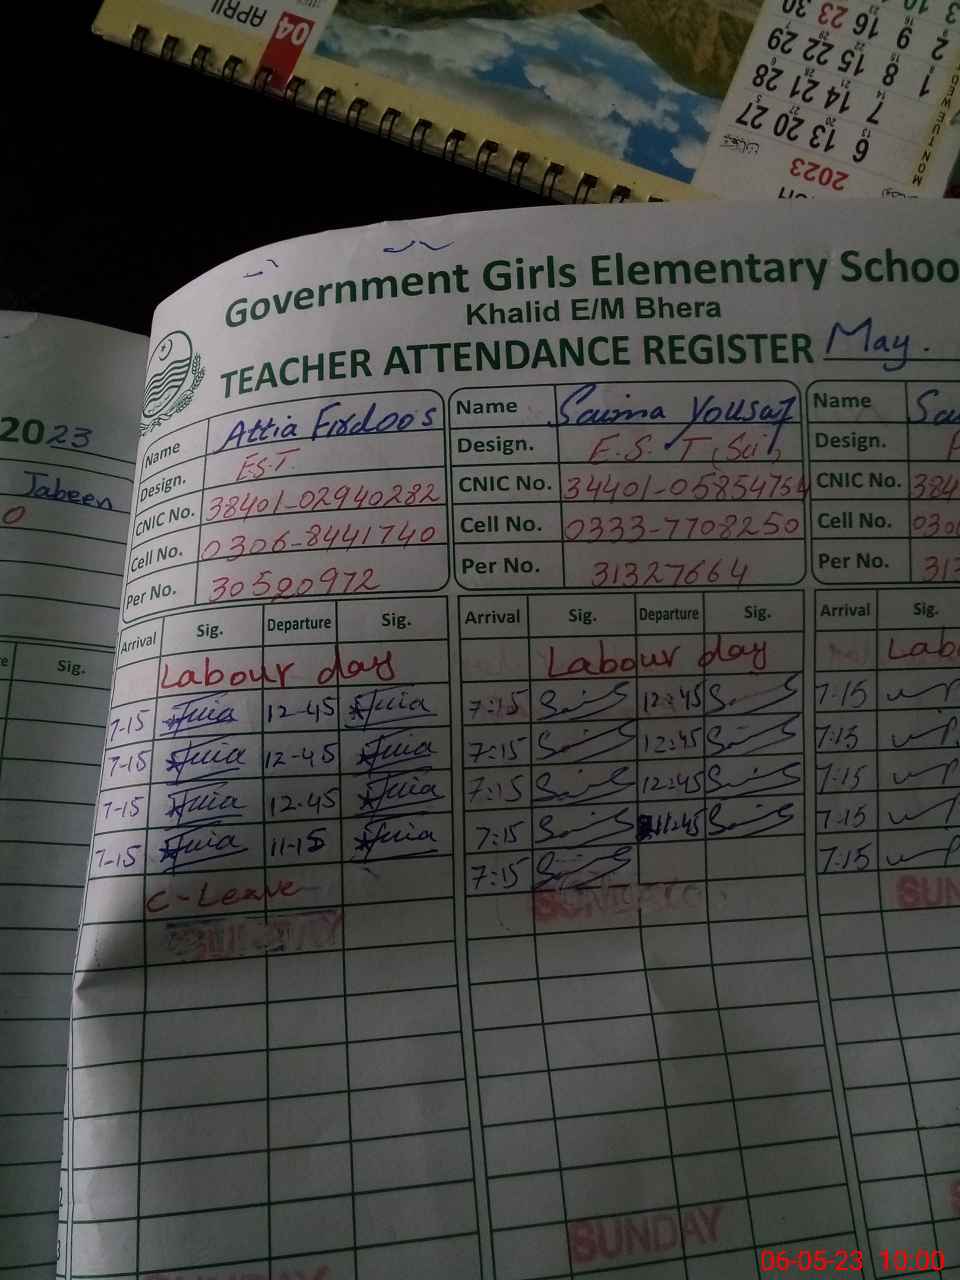 04
APRIL
2023
6 13 20 27
7 14 21 28
1 8 15 22 29
2 9 16 23 30
MON TUE WED
Government Girls Elementary Schoo
Khalid E/M Bhera
TEACHER ATTENDANCE REGISTER May.
2023
Jabeen
0
Sig.
Name Attia Firdoos
Design. E.S.T.
CNIC No. 38401-02940282
Cell No. 0306-8441740
Per No. 30590972
Name Saima Yousaf
Design. E.S.T (Sci)
CNIC No. 34401-05854754
Cell No. 0333-7708250
Per No. 31327664
Name Sa
Design.
CNIC No. 384
Cell No. 030
Per No. 313
Arrival Sig. Departure Sig. Arrival Sig. Departure Sig. Arrival Sig.
Labour day Labour day Lab
7-15 12-45 7:15 12:45 7:15
7-15 12-45 7:15 12:45 7:15
7-15 12-45 7:15 12:45 7:15
7-15 11-15 7:15 11:45 7:15
C-Leave 7:15 7:15
SUNDAY SUNDAY SUN
SUNDAY
06-05-23 10:00